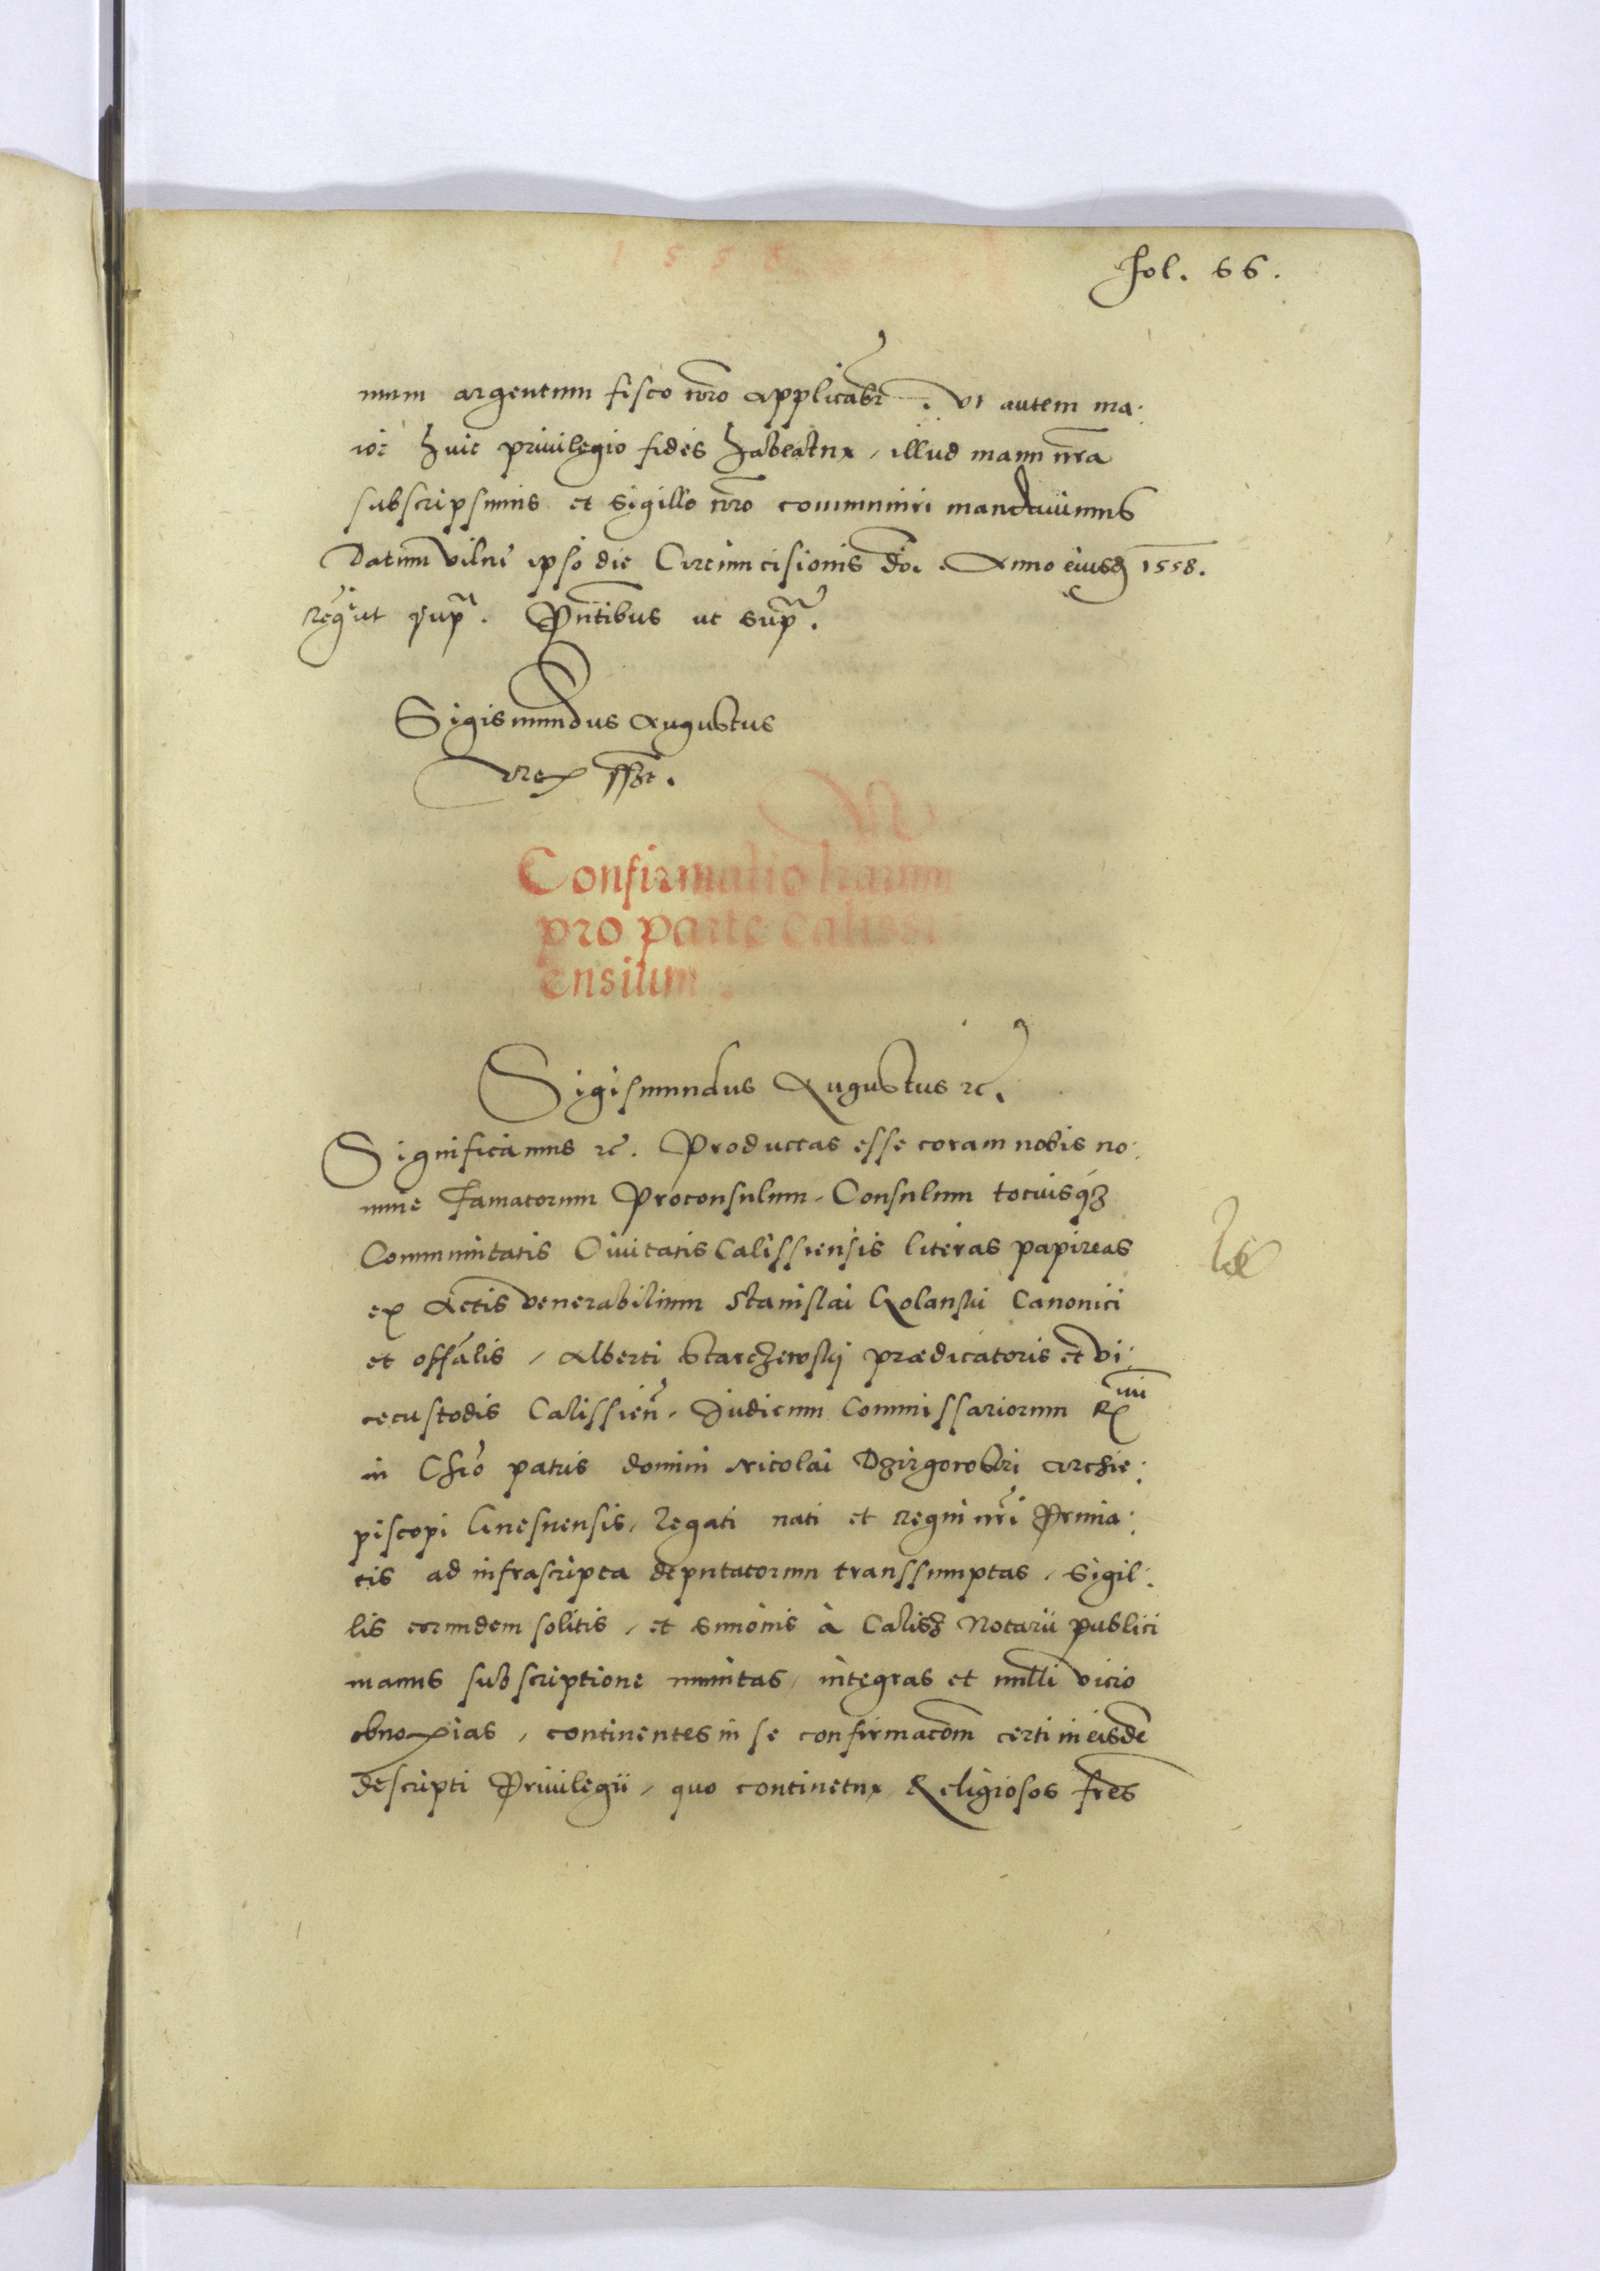 1558
fol. 66.
num argentum fisco nro applicabt. Vt autem ma:
ior huic priuilegio fides habeatur, illud manu nra
subscripsimus et sigillo nro communiri mandauimus
Datum Vilnę ipso die Circumcisionis dni. Anno eiusdẽ 1558.
Regñ ut supra. Pntibus ut supra.
Sigismundus Augustus
Rex sszt.
Confirmatio lrarum
pro parte Calissi
ensium.
Sigismundus Augustus etc.
Significamus etc. Productas esse coram nobis no:
mine famatorum Proconsulum, Consulum totiusq3
Communitatis Ciuitatis Calissiensis literas papireas
ex Actis venerabilium Stanislai Kolanski Canonici
et offalis, Alberti Starczewskij prædicatoris et vi:
cecustodis Calissien, Judicum Commissariorum Rmi
in Chro patris domini Nicolai Dzirgowski Archie:
piscopi Gnesnensis, Legati nati et Regni nri Prima:
tis ad infrascripta deputatorum transsumptas, Sigil:
lis eorumdem solitis, et Simonis à Calisz Notarii publici
manus subscriptione munitas, integras et nulli vicio
obnoxias, continentes in se confirmacom certi in eisdẽ
descripti Priuilegii, quo continetur Religiosos fres